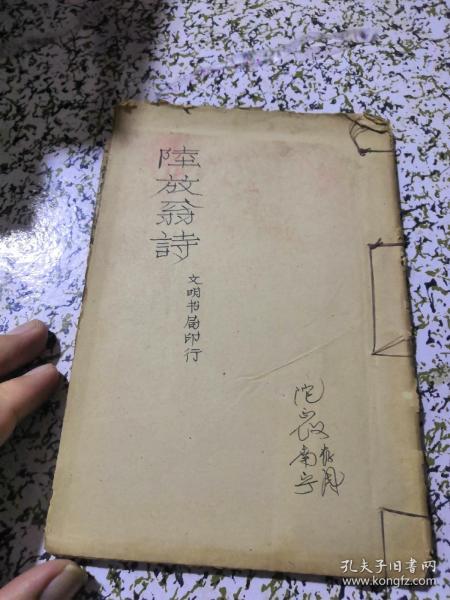 陸放翁詩
文明书局印行
南宁
孔夫子旧书网
www.kongfz.com